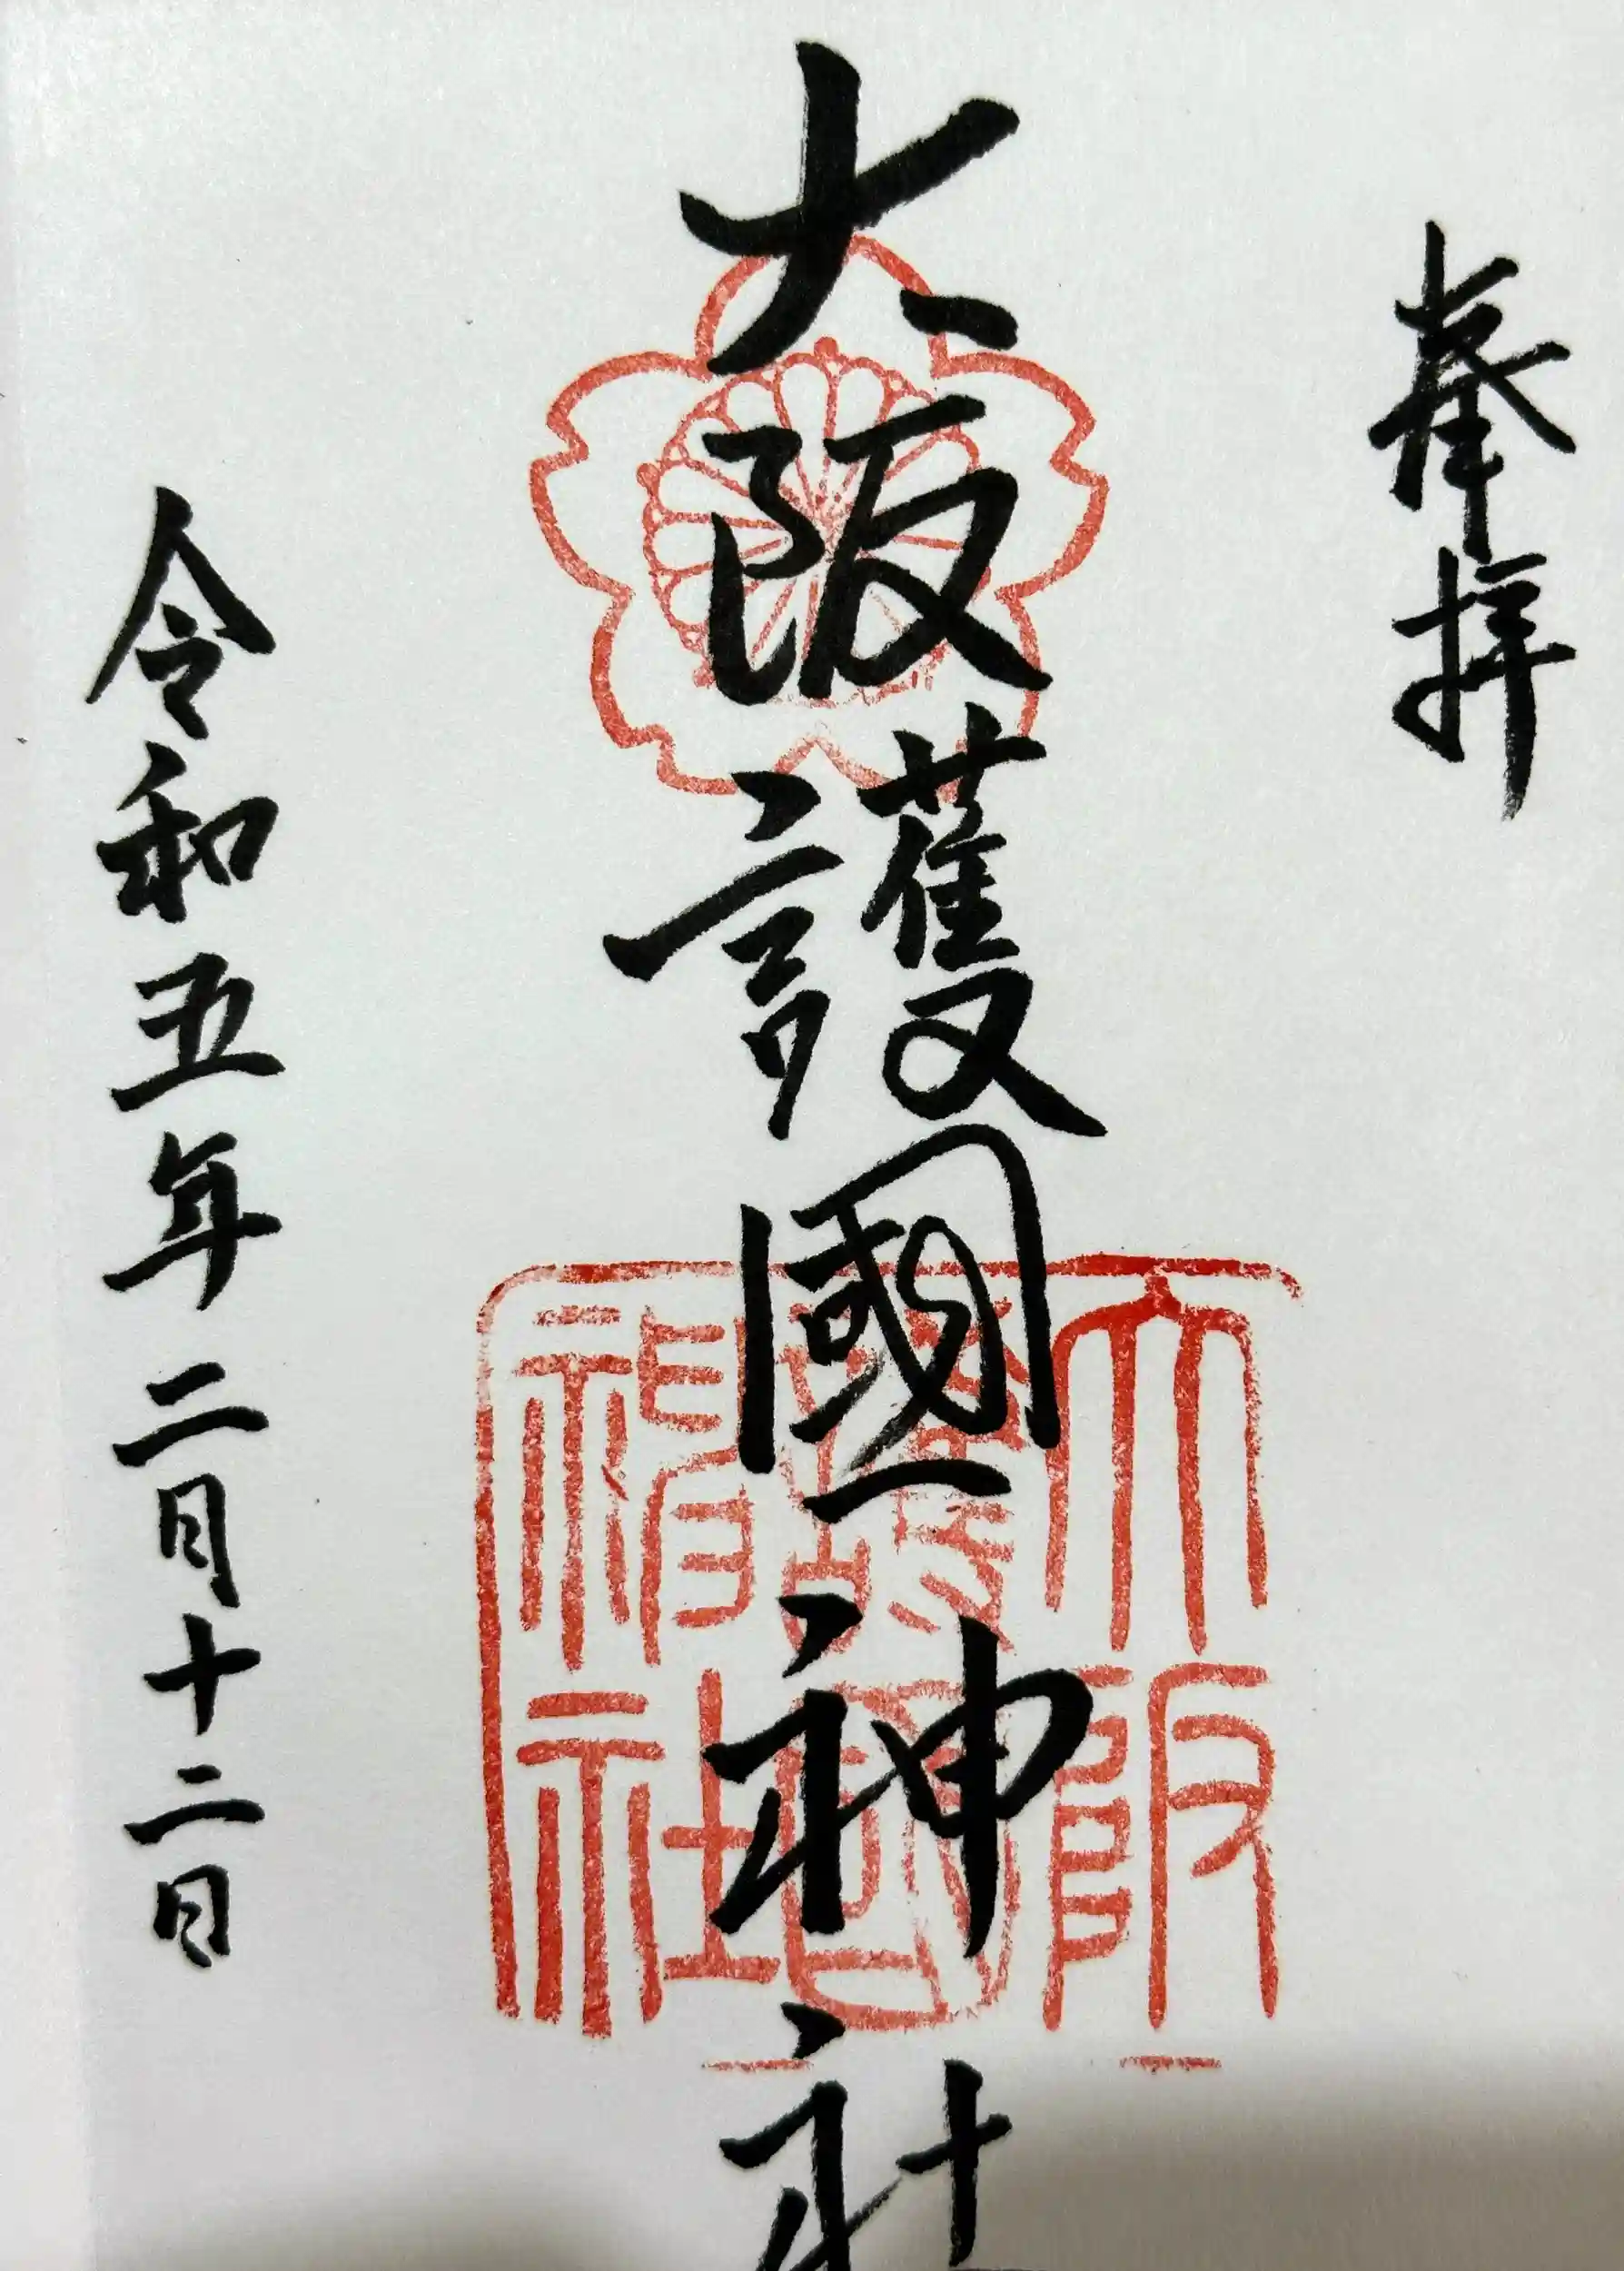 奉拝
大阪護國神社
大阪護國神社
令和五年二月十二日